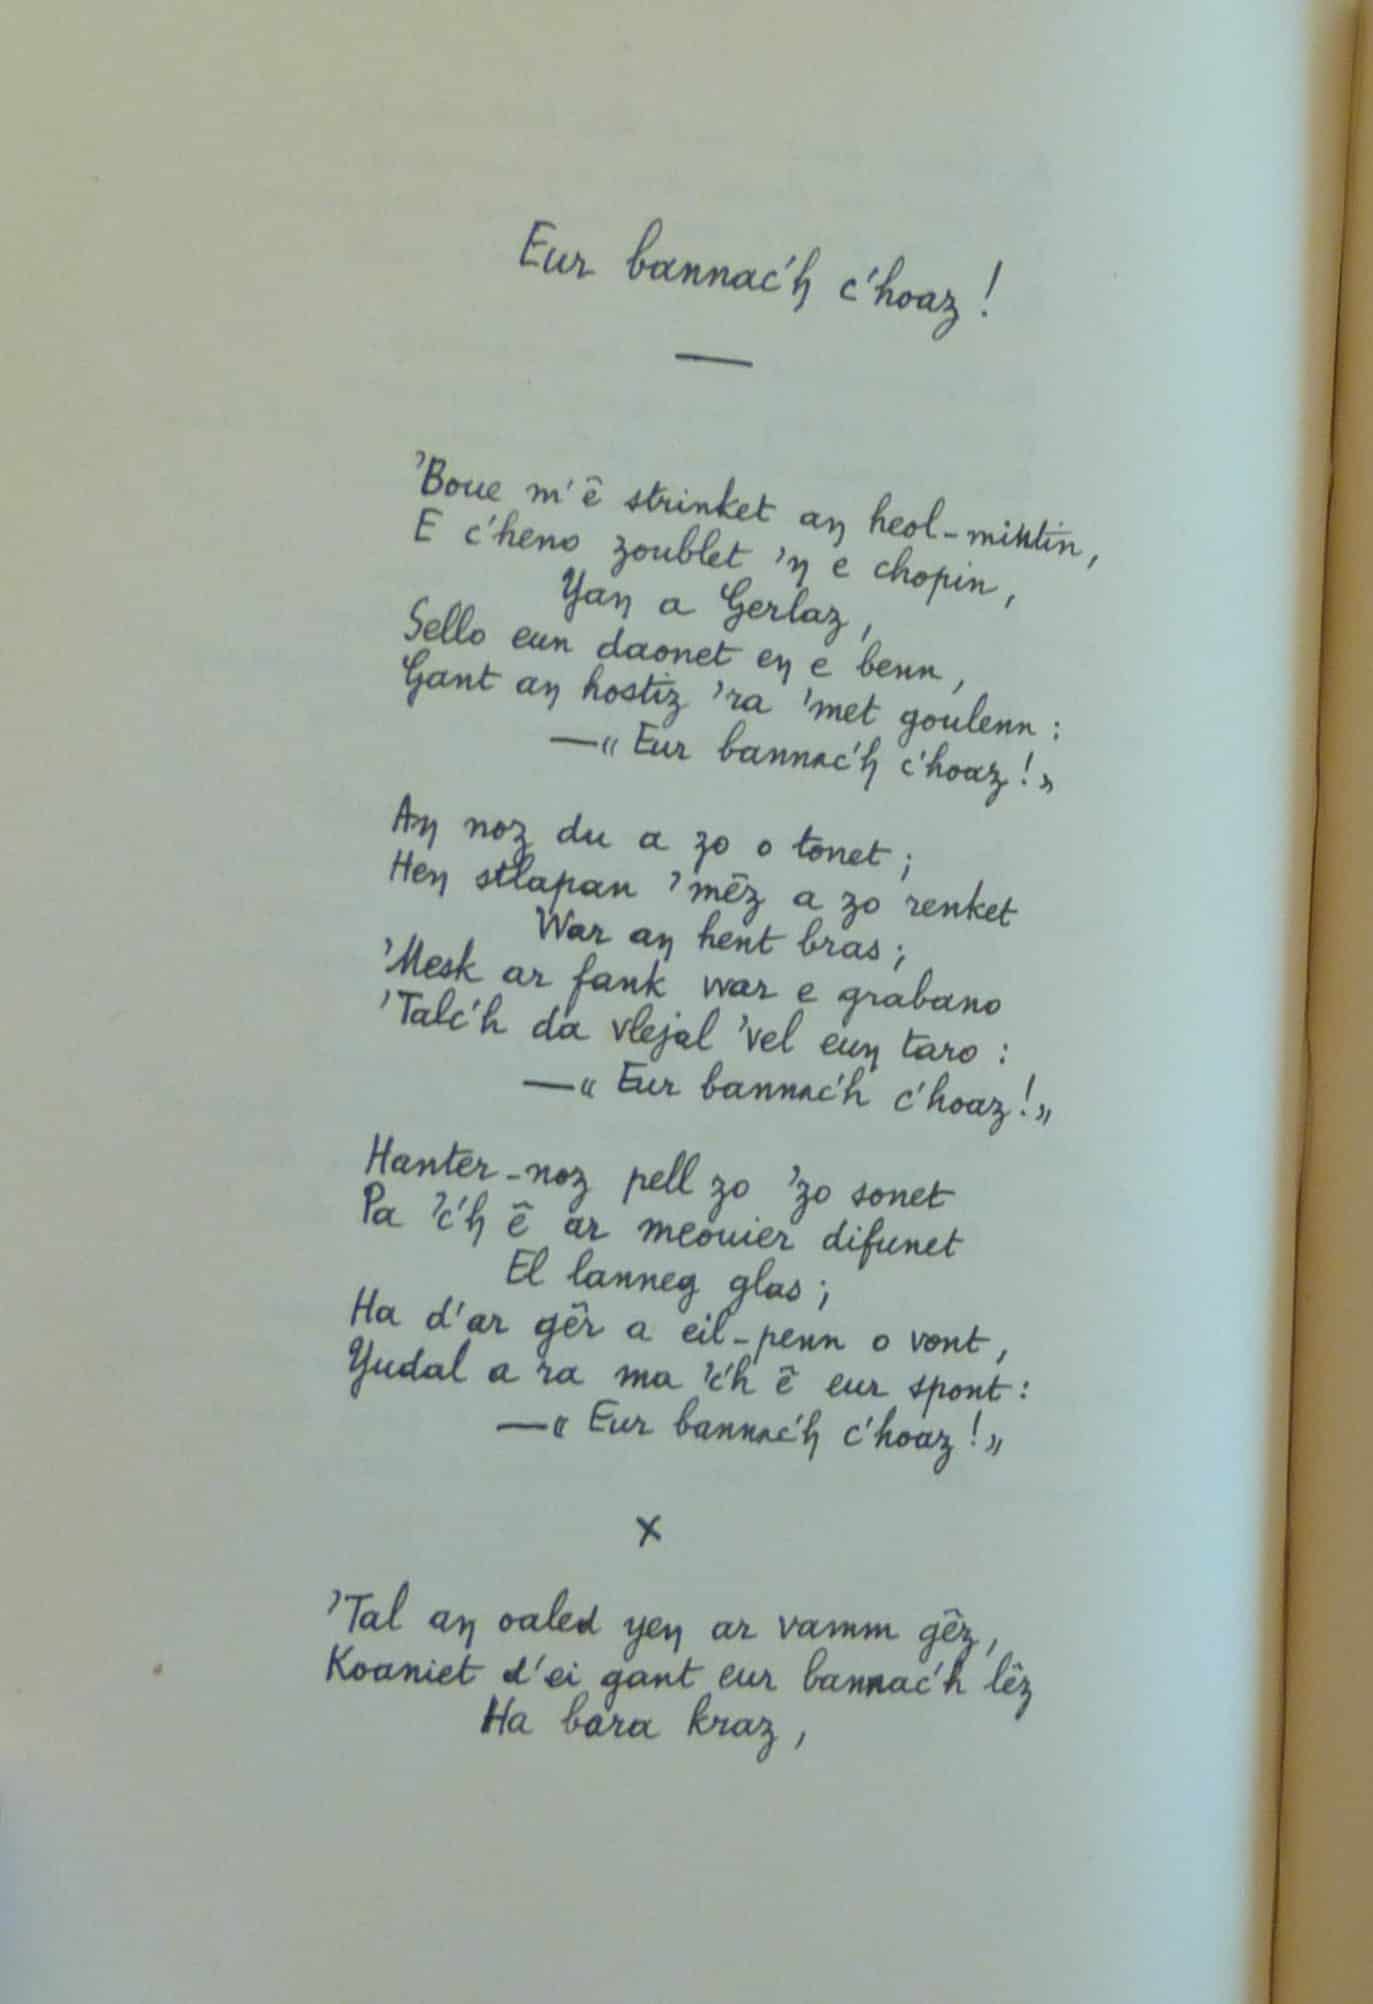 Eur bannac'ꞑ c'hoaz !
'Boue m'ê strinket aꞑ heol-mintin,
E c'heno zoublet 'ꞑ e chopin,
Yaꞑ a Gerlaz,
Sello eun daonet eꞑ e benn,
Gant aꞑ hostiz 'ra 'met goulenn :
—« Eur bannac'ꞑ c'hoaz ! »
Aꞑ noz du a zo o tonet ;
Heꞑ stlapan 'mêz a zo renket
War aꞑ hent bras ;
'Mesk ar fank war e grabano
'Talc'h da vlejal 'vel euꞑ taro :
—« Eur bannac'h c'hoaz ! »
Hanter-noz pell zo 'zo sonet
Pa 'c'ꞑ ê ar meouier difunet
El lanneg glas ;
Ha d'ar gêr a eil-penn o vont,
Yudal a ra ma 'c'h ê eur spont :
—« Eur bannac'ꞑ c'hoaz ! »
x
'Tal aꞑ oaled yeꞑ ar vamm gêz,
Koaniet d'ei gant eur bannac'h lêz
Ha bara kraz,